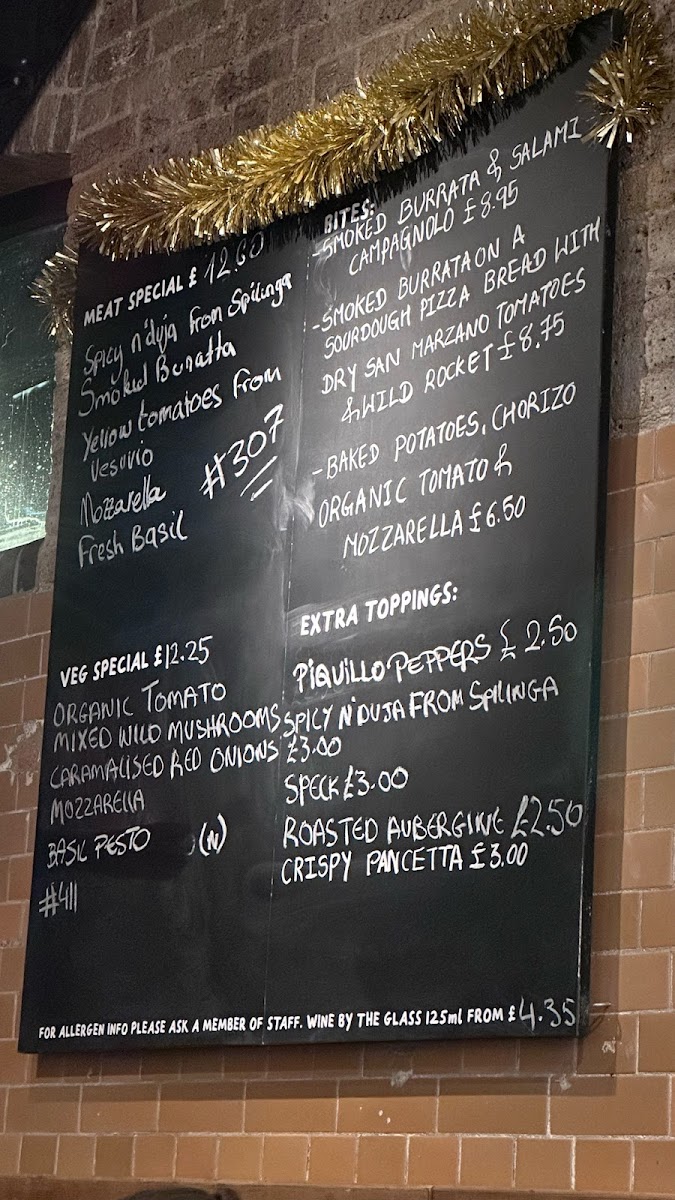 MEAT SPECIAL £ 12.60
Spicy n'duja from Spilinga
Smoked Buratta
Yellow tomatoes from
Vesuvio
Mozzarella
#307
Fresh Basil
VEG SPECIAL £12.25
ORGANIC TOMATO
MIXED WILD MUSHROOMS
CARAMALISED RED ONIONS
MOZZARELLA
BASIL PESTO (N)
#411
BITES:
-SMOKED BURRATA & SALAMI
CAMPAGNOLO £8.95
-SMOKED BURRATA ON A
SOURDOUGH PIZZA BREAD WITH
DRY SAN MARZANO TOMATOES
& WILD ROCKET £8.75
-BAKED POTATOES, CHORIZO
ORGANIC TOMATO &
MOZZARELLA £6.50
EXTRA TOPPINGS:
PIQUILLO PEPPERS £ 2.50
SPICY N'DUJA FROM SPILINGA
£3.00
SPECK £3.00
ROASTED AUBERGINE £2.50
CRISPY PANCETTA £3.00
FOR ALLERGEN INFO PLEASE ASK A MEMBER OF STAFF. WINE BY THE GLASS 125ml FROM £4.35